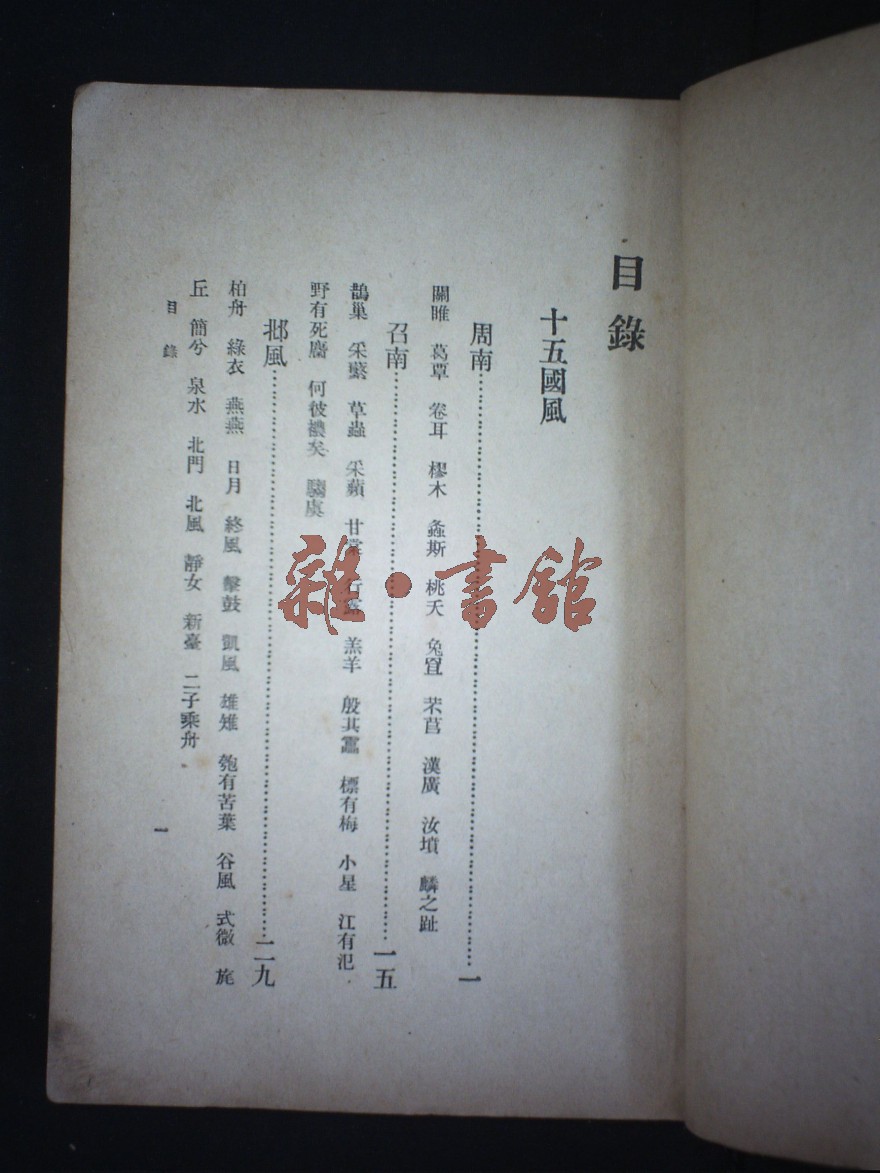 目錄
十五國風
周南……一
關雎 葛覃 卷耳 樛木 螽斯 桃夭 兔罝 芣苢 漢廣 汝墳 麟之趾
召南……一五
鵲巢 采蘩 草蟲 采蘋 甘棠 行露 羔羊 殷其靁 標有梅 小星 江有汜
野有死麕 何彼襛矣 騶虞
邶風……二九
柏舟 綠衣 燕燕 日月 終風 擊鼓 凱風 雄雉 匏有苦葉 谷風 式微 旄
丘 簡兮 泉水 北門 北風 靜女 新臺 二子乘舟
目錄
一
雜·書館